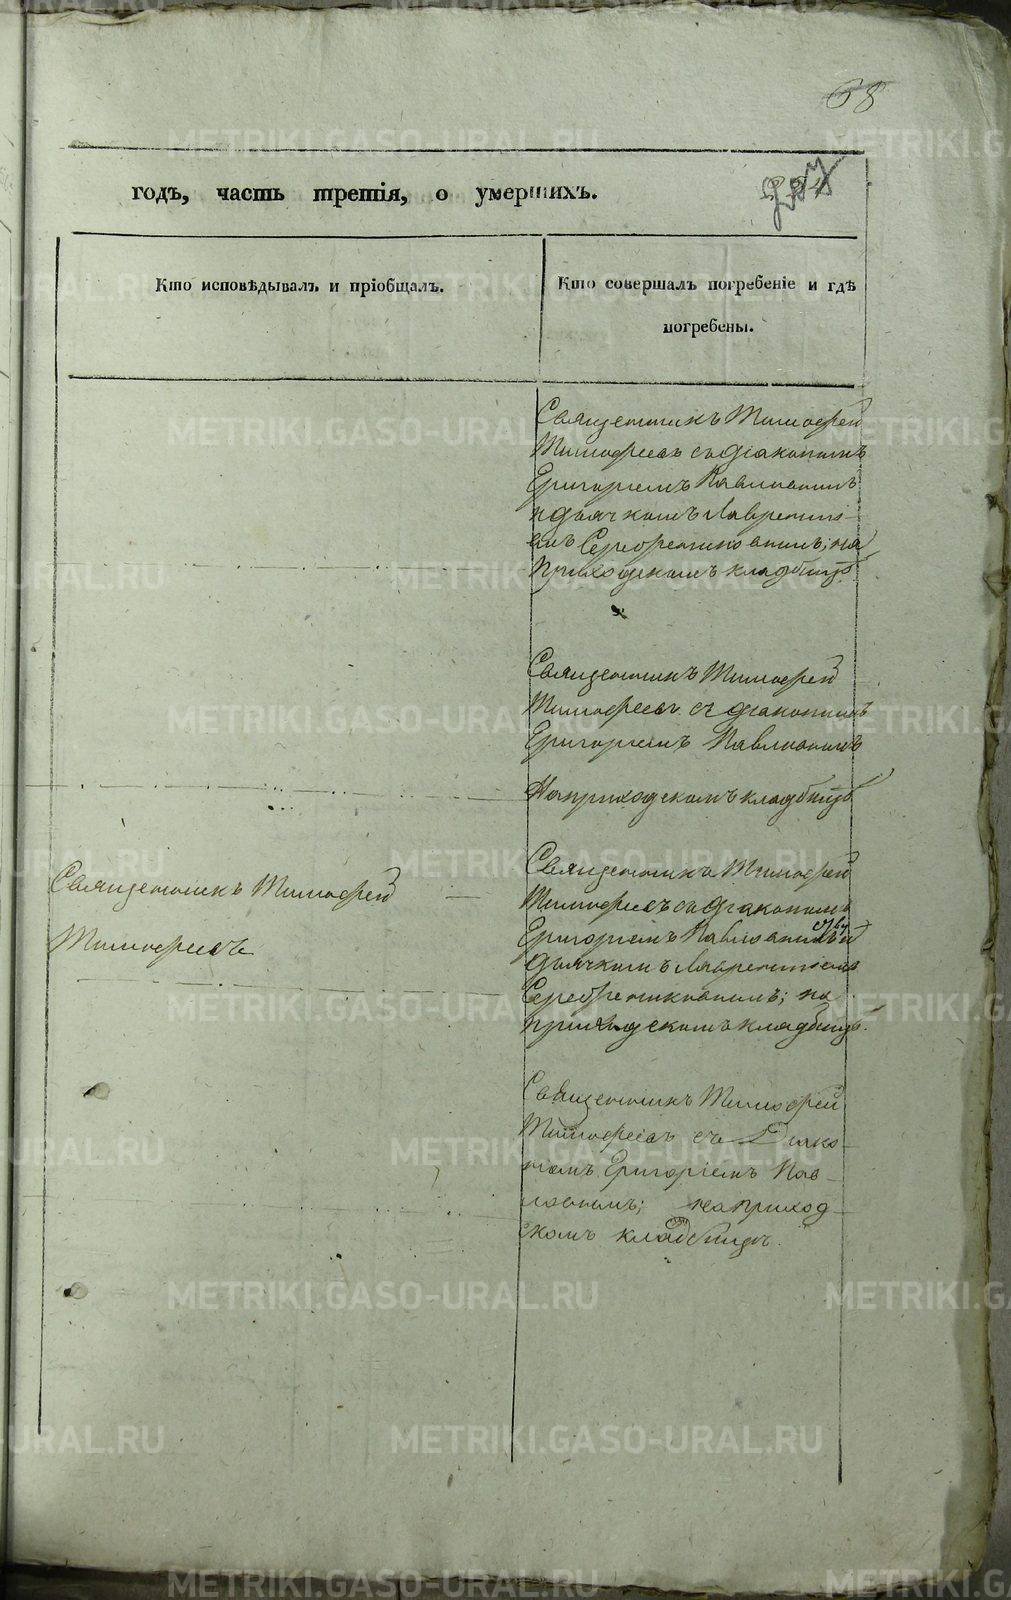 68
годъ, часть третія, о умершихъ.
Кто исповѣдывалъ и пріобщалъ.
Кто совершалъ погребеніе и гдѣ
погребены.
Священникъ Тимофей
Тимофеевъ съ діакономъ
Григоріемъ Павловымъ
и дьячкомъ Лавренті-
емъ Серебренниковымъ; на
приходскомъ кладбищѣ
Священникъ Тимофей
Тимофеевъ съ діакономъ
Григоріемъ Павловымъ
На приходскомъ кладбищѣ
Священникъ Тимофей
Тимофеевъ
Священникъ Тимофей
Тимофеевъ съ діакономъ
Григоріемъ Павловымъ и
дьячкомъ Лаврентіемъ
Серебренниковымъ; на
приходскомъ кладбищѣ.
Священникъ Тимофей
Тимофеевъ съ Діако-
номъ Григоріемъ Пав-
ловымъ; на приход-
скомъ кладбищѣ.
METRIKI.GASO-URAL.RU